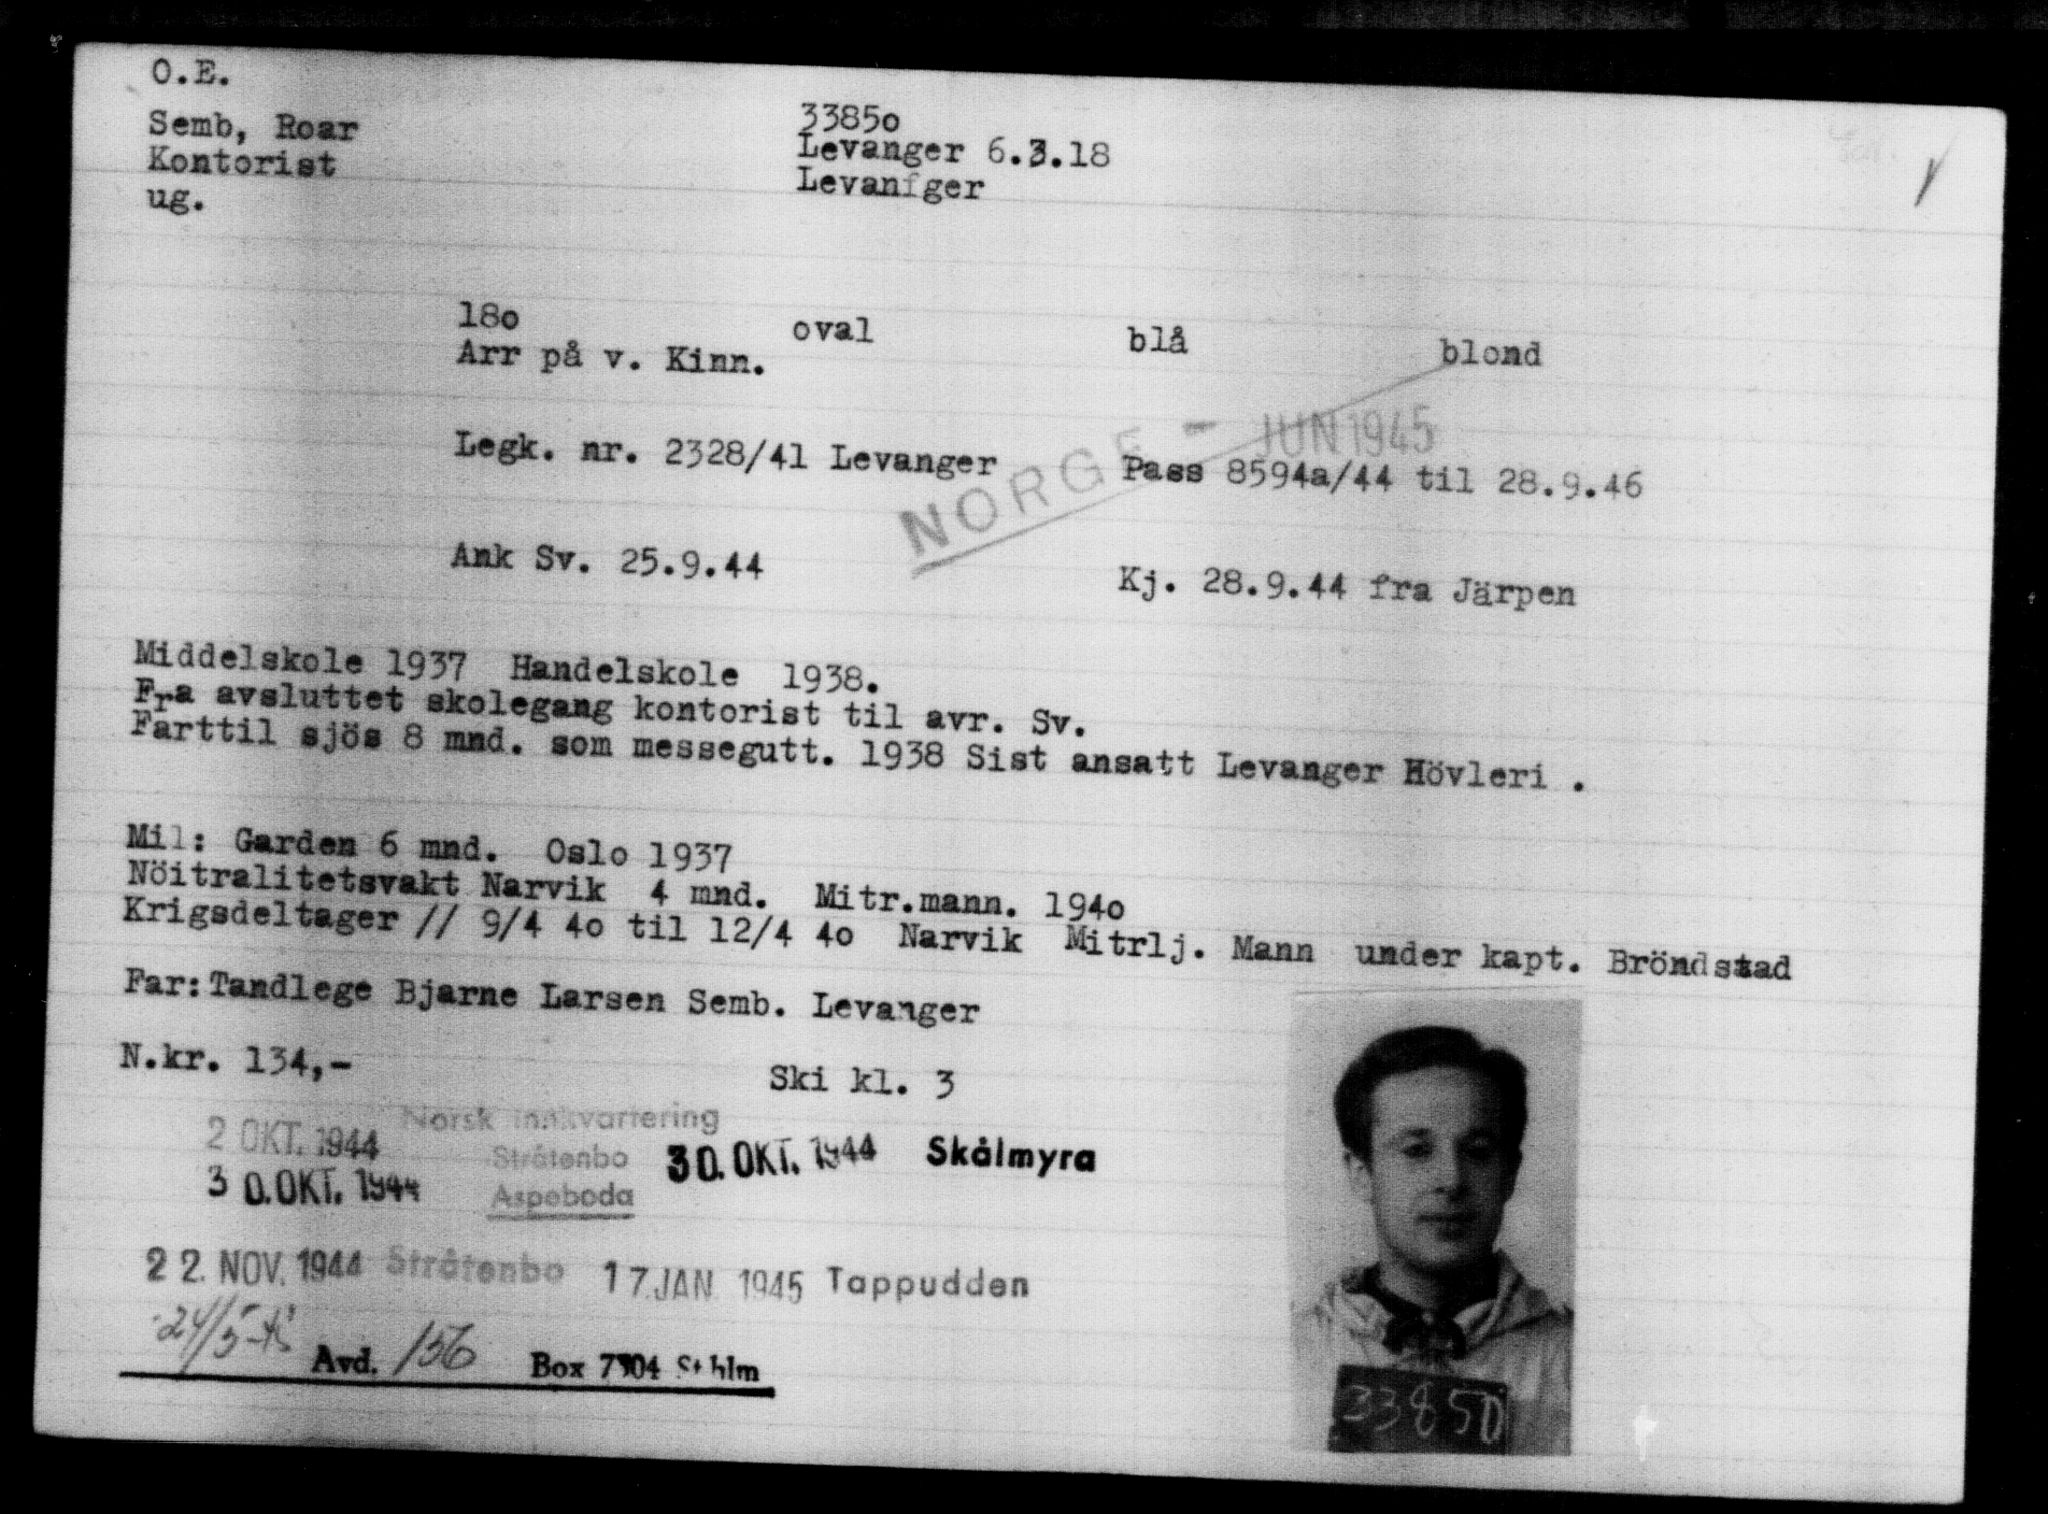 O.E.
Semb, Roar 3385o
Kontorist Levanger 6.3.18
ug. Levanfger
18o oval blå blond
Arr på v. Kinn.
NORGE - JUN 1945
Legk. nr. 2328/41 Levanger Pass 8594a/44 til 28.9.46
Ank Sv. 25.9.44 Kj. 28.9.44 fra Järpen
Middelskole 1937 Handelskole 1938.
Fra avsluttet skolegang kontorist til avr. Sv.
Farttil sjös 8 mnd. som messegutt. 1938 Sist ansatt Levanger Hövleri .
Mil: Garden 6 mnd. Oslo 1937
Nöitralitetsvakt Narvik 4 mnd. Mitr.mann. 194o
Krigsdeltager // 9/4 4o til 12/4 4o Narvik Mitrlj. Mann under kapt. Bröndstad
Far: Tandlege Bjarne Larsen Semb. Levanger
N.kr. 134,- Ski kl. 3
2 OKT. 1944 Norsk innkvartering
Stråtenbo 30. OKT. 1944 Skålmyra
30. OKT. 1944 Aspeboda
22. NOV. 1944 Stråtenbo 17. JAN. 1945 Tappudden
24/5-45 Avd. 156 Box 7304 Sthlm
33850